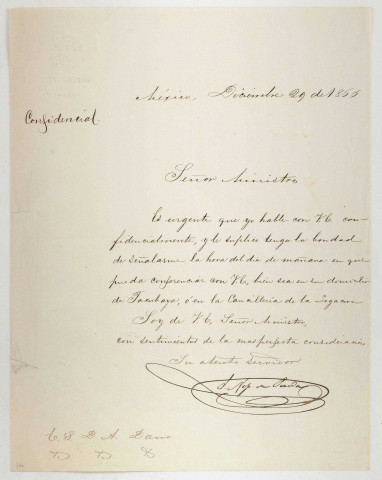 México, Diciembre 29 de 1866
Confidencial.
Señor Ministro
Es urgente que yo hable con V.E. con-
fidencialmente, y le suplico tenga la bondad
de señalarme la hora del dia de mañana en que
pueda conferenciar con V.E, bien sea en su domicilio
de Tacubaya, ó en la Cancilleria de la Legacion
Soy de V.E. Señor Ministro,
con sentimientos de la mas perfecta consideracion
Su atento servidor
E. S. D. A. Dano